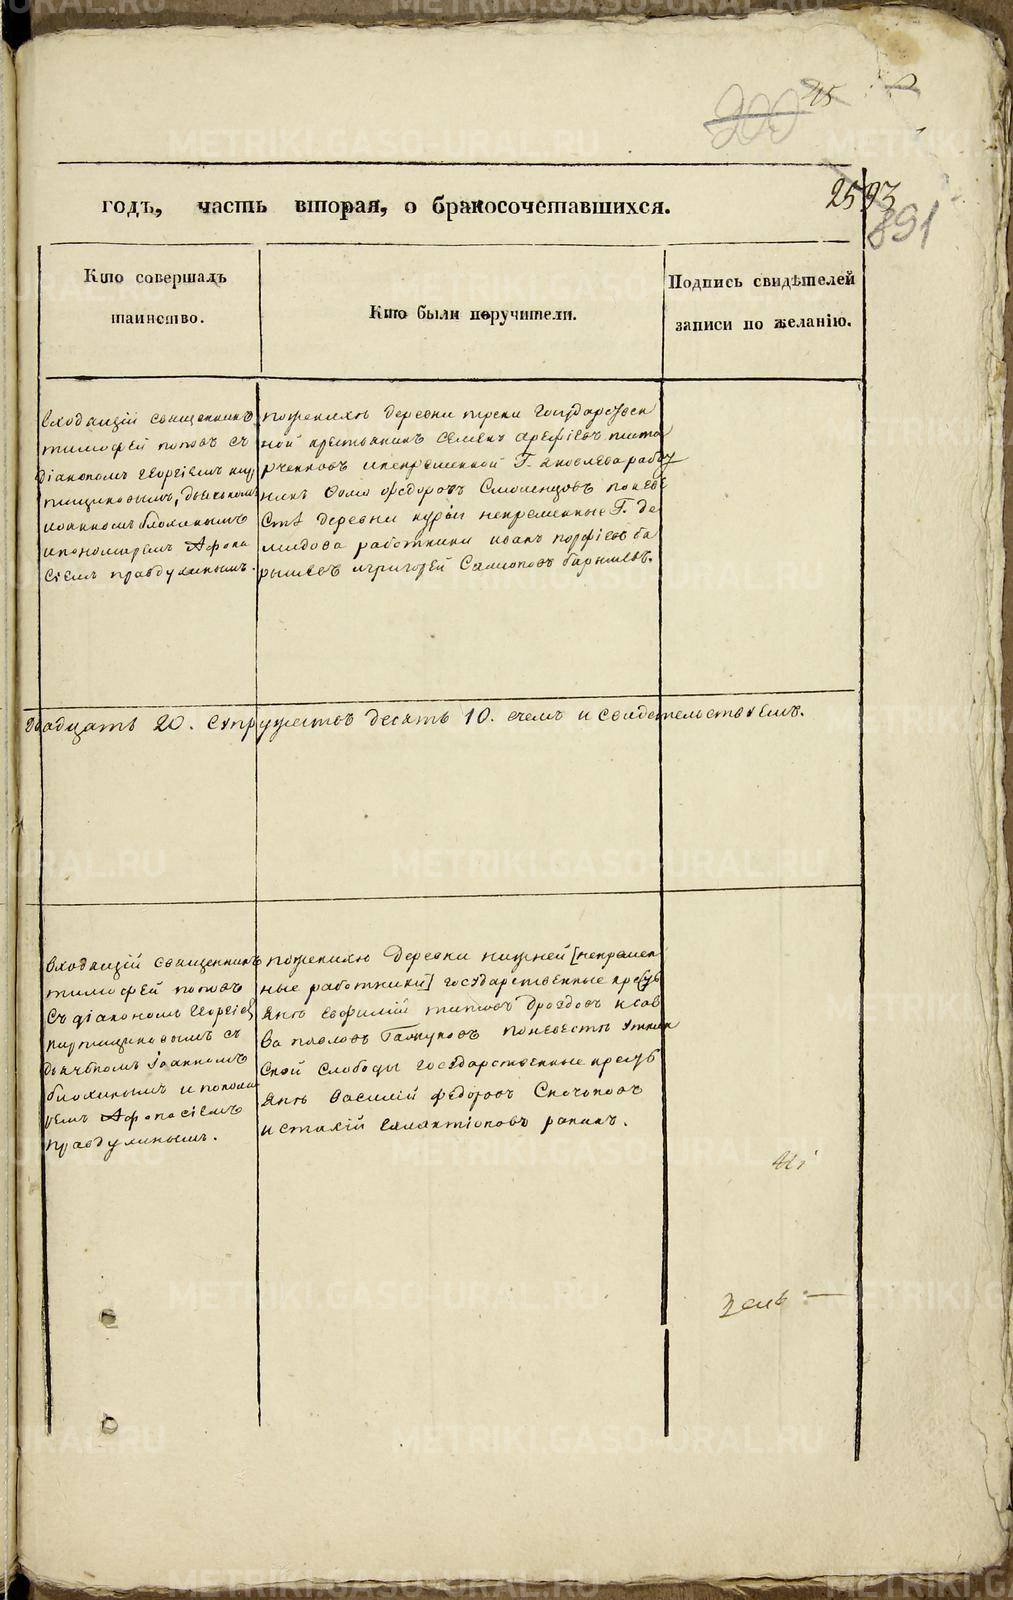 200 45
2593
891
годъ, часть вторая, о бракосочетавшихся.
Кто совершалъ
таинство.
Кто были поручители.
Подпись свидѣтелей
записи по желанію.
входящій священникъ
тимофей поповъ съ
діакономъ георгіемъ
дьячкомъ
иоанномъ блохинымъ
и пономаремъ Афона
сіемъ правдухинымъ.
пожениху деревни трени государствен
ной крестьянинъ семенъ арефіевъ
и непременной Г. яковлева работ
никъ фома федоровъ Смоленцовъ поневе
стѣ деревни курьи непременные Г. де
мидова работники иванъ порфіевъ ба
рышевъ игригорей Самсоновъ барышевъ.
двадцать 20. супружествъ десять 10. счемъ и свидетельствуемъ.
входящій священникъ
тимофей поповъ
съ діакономъ георгіе
съ
дьячкомъ іоанномъ
блохинымъ и понома
ремъ Афонасіемъ
правдухинымъ.
пожениху деревни нижней [непремен
ные работники] государственные крестья
яне ефимій титовъ дроздовъ исав
ва павловъ поневестѣ уткин
ской слободы государственные крестья
яне василій федоровъ
истахій галактіоновъ
METRIKI.GASO-URAL.RU